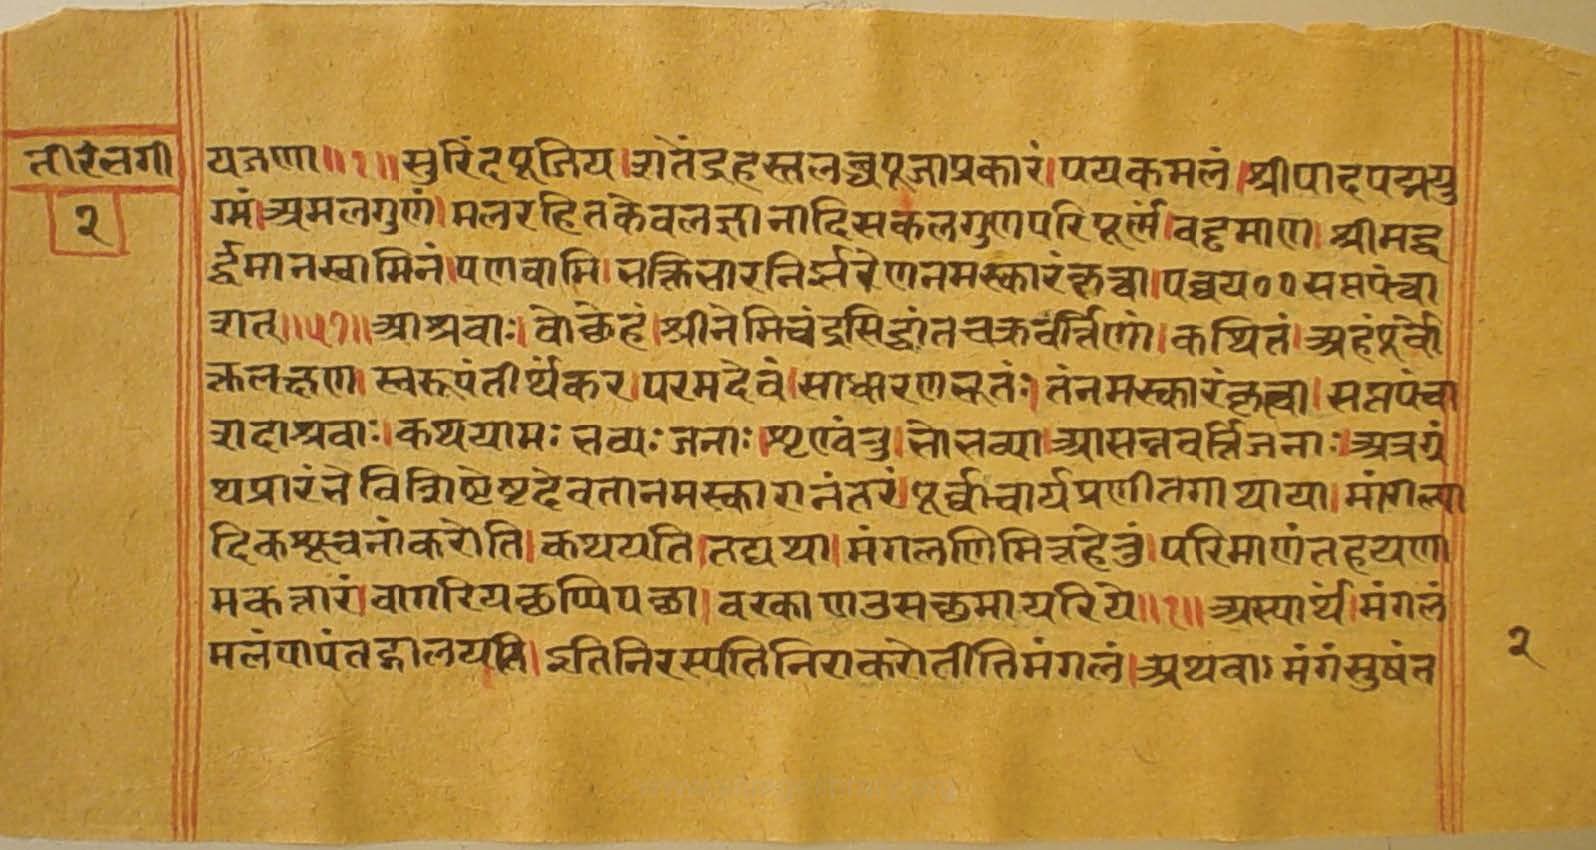 यजणा॥१॥सुरिंदपूजिय।शतेंद्रहस्तलब्धपूजाप्रकारं।पयकमलं।श्रीपादपद्मयु
ग्मं।अमलगुणं।मलरहितकेवलज्ञानादिसकलगुणपरिपूर्णं।वड्ढमाण।श्रीमद्व
र्द्धमानस्वामिनं।पणवामि।भक्तिभारनिर्भरेणनमस्कारंकृत्वा।पच्चय००सप्तपंचा
शत्॥५७॥आश्रवाः।वोच्छेहं।श्रीनेमिचंद्रसिद्धांतचक्रवर्त्तिणां।कथितं।अहंपूर्वो
क्तलक्षण।स्वरूपंतीर्थंकर।परमदेवं।साधारणभूतं।तंनमस्कारंकृत्वा।सप्तपंचा
शदाश्रवाः।कथयामः भव्यः जनाः शृण्वंतु।भोभव्या।आसन्नवर्त्तिजनाः।अत्रग्रं
थप्रारंभेविशिष्टेष्टदेवतानमस्कारानंतरं।पूर्वाचार्यप्रणीतगाथाया।मांगल्या
दिकशूचनांकरोति।कथयति।तद्यथा।मंगलणिमित्तहेतुं।परिमाणंतहयणा
मकत्तारं।वागरियछप्पिपच्छा।वरकाणउसछमायरिये॥१॥अस्यार्थ।मंगलं
मलंपापंतद्गालयति।इतिनिरस्यतिनिराकरोतीतिमंगलं।अथवाऽमंगंसुषंत
२
२